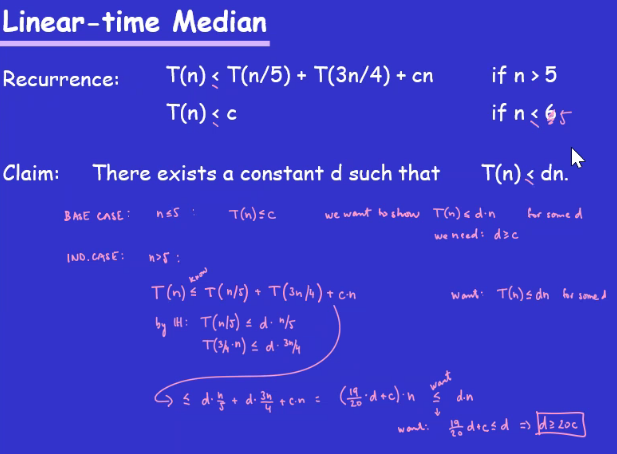 Linear-time Median
Recurrence: T(n) ≤ T(n/5) + T(3n/4) + cn if n > 5
T(n) ≤ c if n ≤ 5
Claim: There exists a constant d such that T(n) ≤ dn.
BASE CASE: n≤5 : T(n)≤c we want to show T(n) ≤ d·n for some d
we need: d≥c
IND. CASE: n>5 :
know
T(n) ≤ T(n/5) + T(3n/4) + c·n want: T(n) ≤ dn for some d
by IH: T(n/5) ≤ d· n/5
T(3/4·n) ≤ d· 3n/4
want
≤ d· n/5 + d· 3n/4 + c·n = (19/20·d+c)·n ≤ d·n
want: 19/20 d+c ≤ d ⇒ d≥20c